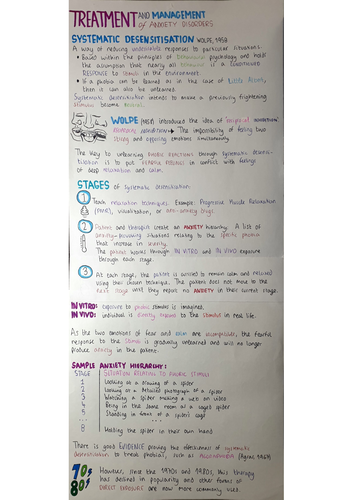 TREATMENT AND MANAGEMENT
OF ANXIETY DISORDERS
SYSTEMATIC DESENSITISATION WOLPE, 1958
A way of reducing undesirable responses to particular situations.
• Based within the principles of behavioural psychology and holds
the assumption that nearly all behaviour is a CONDITIONED
RESPONSE to stimuli in the environment.
• If a phobia can be learned as in the case of Little Albert,
then it can also be unlearned.
Systematic desensitisation intends to make a previously frightening
stimulus become neutral.
WOLPE (1958) introduced the idea of 'reciprocal inhibition'
The impossibility of feeling two
strong and opposing emotions simultaneously.
The key to unlearning phobic reactions through systematic desensi-
tisation is to put fearful feelings in conflict with feelings
of deep relaxation and calm.
STAGES of systematic desensitisation
1 Teach relaxation techniques. Example: Progressive Muscle Relaxation
(PMR), visualisation, or anti-anxiety drugs.
2 Patient and therapist create an ANXIETY hierarchy. A lists of
anxiety-provoking situations relating to the specific phobia
that increase in severity.
The patient works through IN VITRO and IN VIVO exposure
through each stage.
3 At each stage, the patient is assisted to remain calm and relaxed
using their chosen technique. The patient does not move to the
next stage until they report no ANXIETY in their current stage.
IN VITRO: exposure to phobic stimulus is imagined.
IN VIVO: individual is directly exposed to the stimulus in real life.
As the two emotions of fear and calm are incompatible, the fearful
response to the stimuli is gradually unlearned and will no longer
produce anxiety in the patient.
SAMPLE ANXIETY HIERARCHY:
STAGE SITUATION RELATING TO PHOBIC STIMULUS
1 Looking at a drawing of a spider
2 Looking at a detailed photograph of a spider
3 Watching a spider making a web on video
4 Being in the same room as a caged spider
5 Standing in front of a spider's cage
... ...
8 Holding the spider in their own hand
There is good EVIDENCE proving the effectiveness of systematic
desensitisation to treat phobias, such as Arachnophobia
70s
80s
However, since the 1970s and 1980s, this therapy
has declined in popularity and other forms of
DIRECT EXPOSURE are now more commonly used.